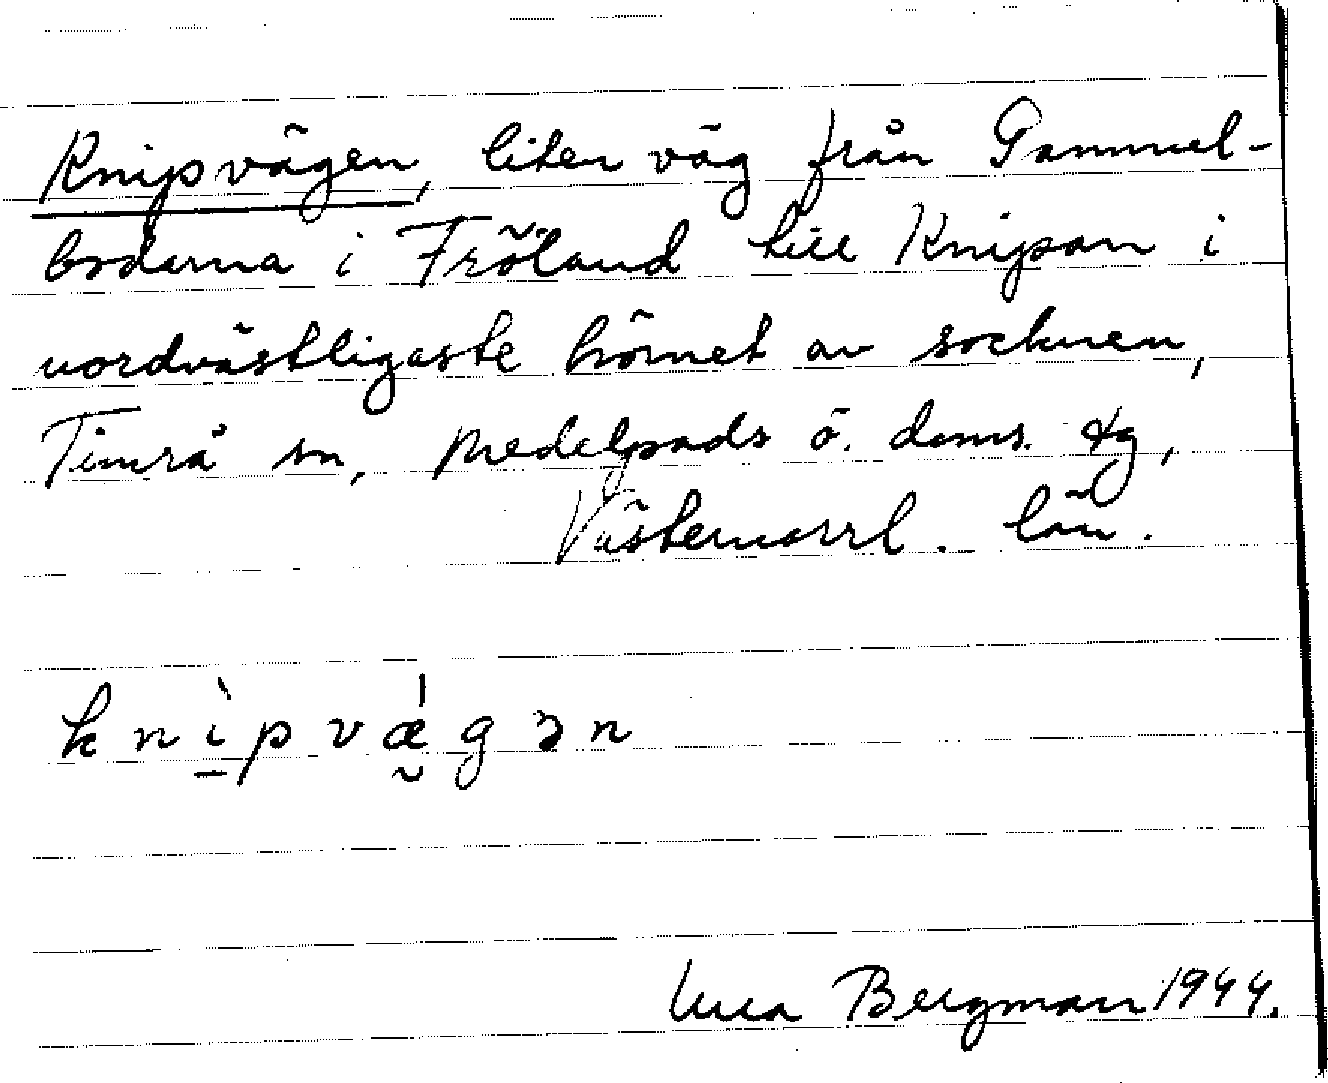 Knipvägen, liten väg från Gammel-
bodarna i Fröland till Knipan i
nordvästligaste hörnet av socknen,
Timrå sn, Medelpads ö. doms. tg,
Västernorrl. län.
knì̱pvǽ̰gən
Una Bergman 1944.